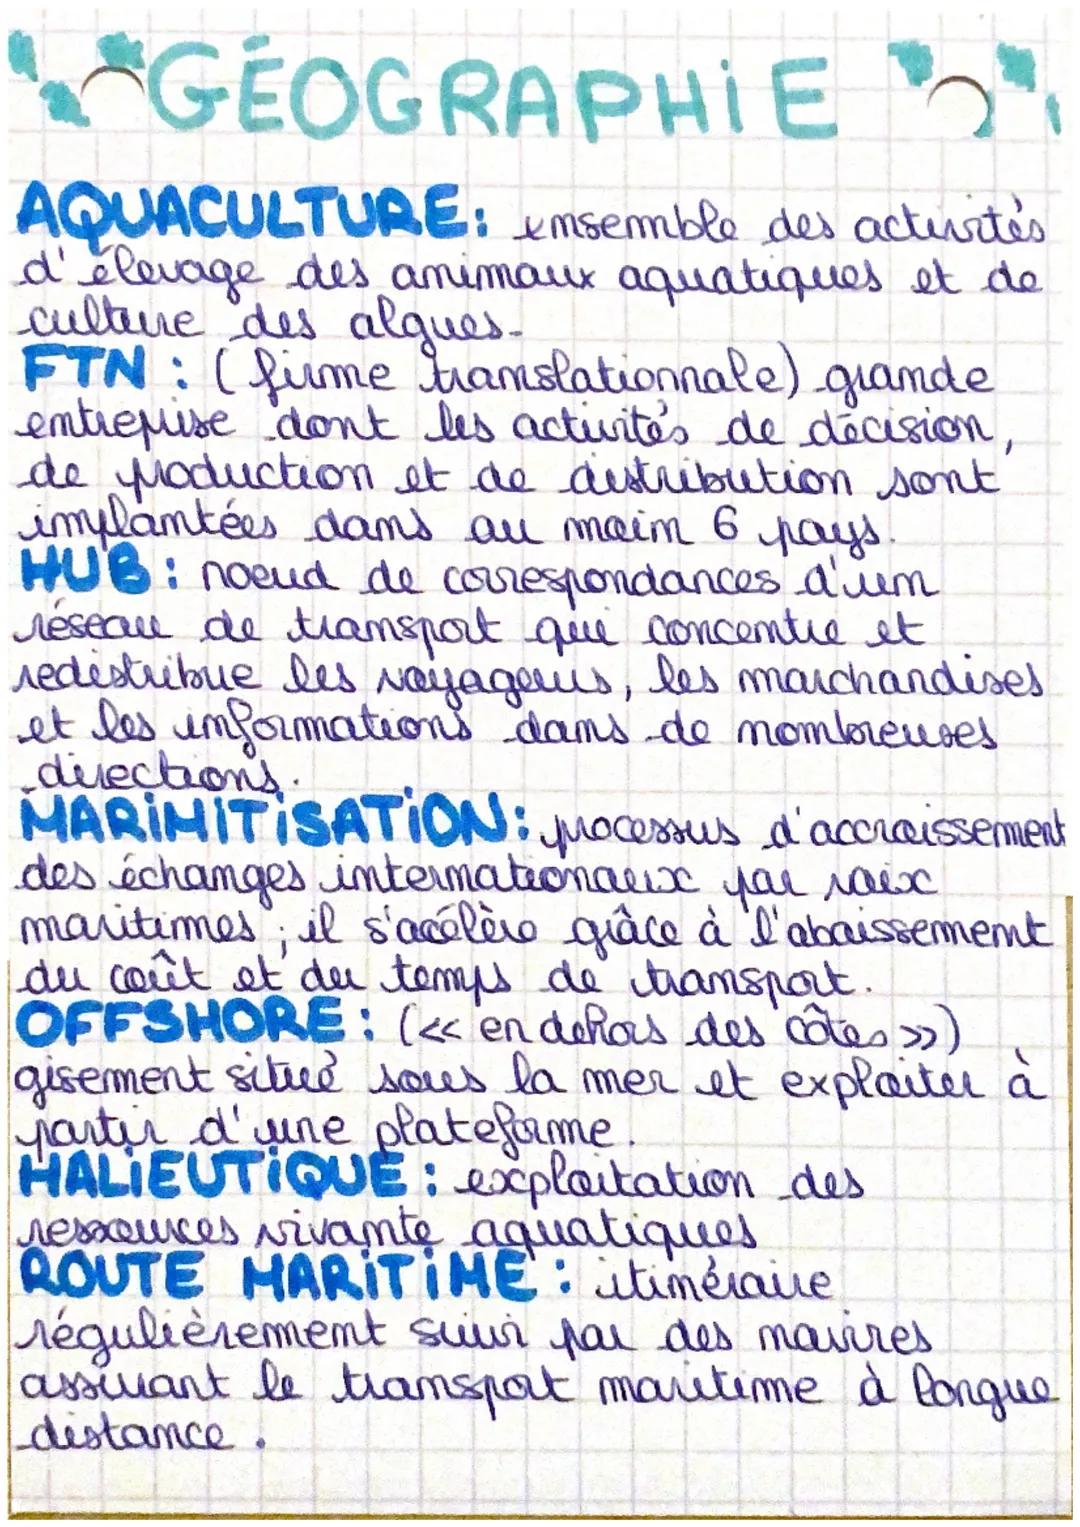 GÉOGRAPHiE
AQUACULTURE: ensemble des activités
d'élevage des animaux aquatiques et de
culture des algues.
FTN : (firme translationnale) grande
entreprise dont les activités de décision,
de production et de distribution sont
implantées dans au moin 6 pays.
HUB : noeud de correspondances d'un
réseau de transport que concentre et
redistribue les voyageurs, les marchandises
et les informations dans de nombreuses
directions.
MARiMiTiSATiON: processus d'accroissement
des échanges internationaux par voix
maritimes, il s'acélère grâce à l'abaissement
du coût et du temps de transport.
OFFSHORE : (<< en dehors des côtes >>)
gisement situé sous la mer et exploiter à
partir d'une plateforme.
HALiEUTiQUE : exploitation des
ressources vivante aquatiques
ROUTE MARiTiME : itinéraire
régulièrement suivi par des navires
assurant le transport maritime à longue
distance.